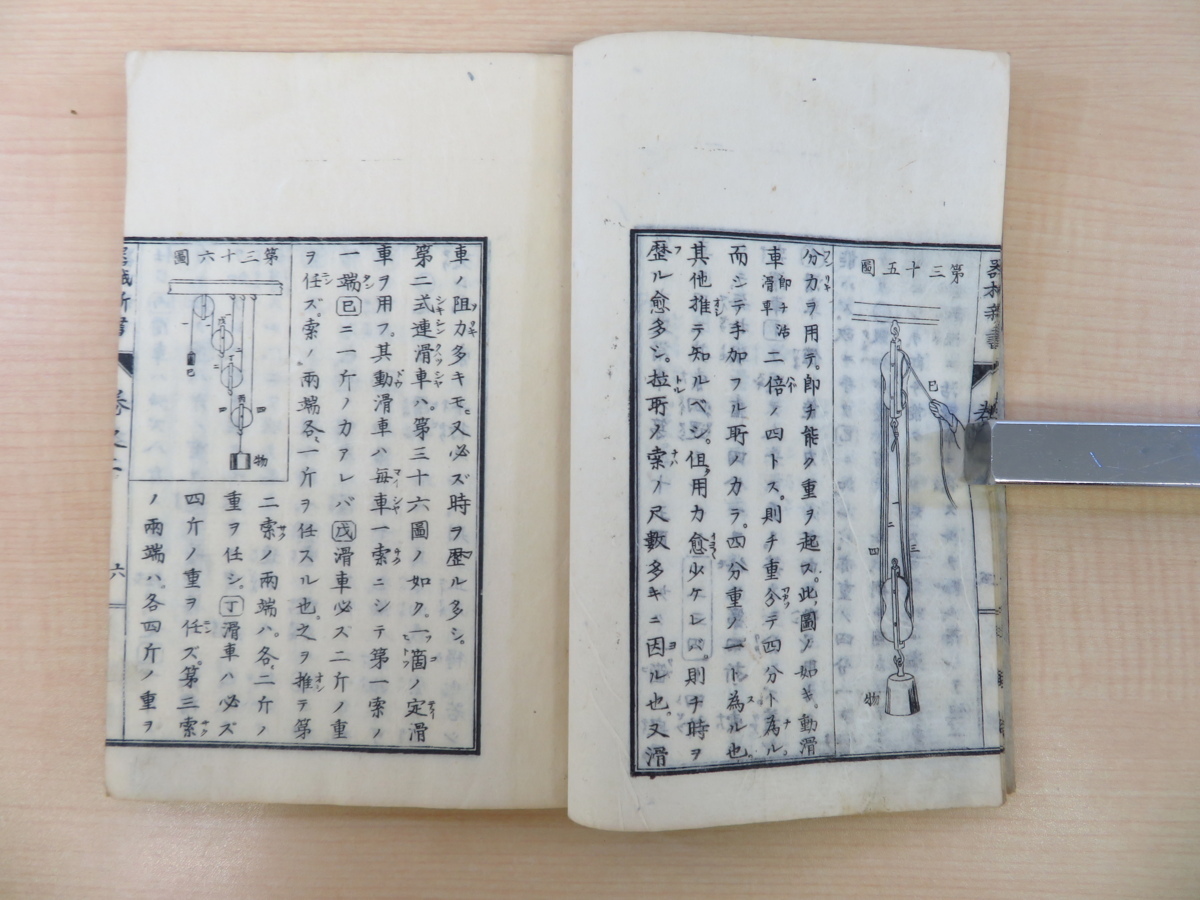 第三十五圖
己
三
四
物
分力ヲ用テ。即チ能ク重ヲ起ス。此圖ノ如キ。動滑
車 滑車 即チ活 二倍ノ四トス。則チ重分テ四分ト為ル
而シテ手加フル所ノ力ラ。四分重ノ一ト為ル也。
其他推テ知ルベシ。但用力愈少ケレバ。則チ時ヲ
歴ル愈多シ。拉所ノ索ノ尺數多キニ因ル也。又滑
車ノ阻力多キモ。又必ズ時ヲ歴ル多シ。
第二式連滑車ハ。第三十六圖ノ如ク。一箇ノ定滑
車ヲ用フ。其動滑車ハ每車一索ニシテ第一索ノ
一端己ニ一斤ノカアレバ戊滑車必ズ二斤ノ重
ヲ任ズ。索ノ兩端各一斤ヲ任スル也。之ヲ推テ第
第三十六圖
己
丁
丙
四
四
物
二索ノ兩端ハ。各二斤ノ
重ヲ任シ。丁滑車ハ必ズ
四斤ノ重ヲ任ズ。第三索
ノ兩端ハ。各四斤ノ重ヲ
六